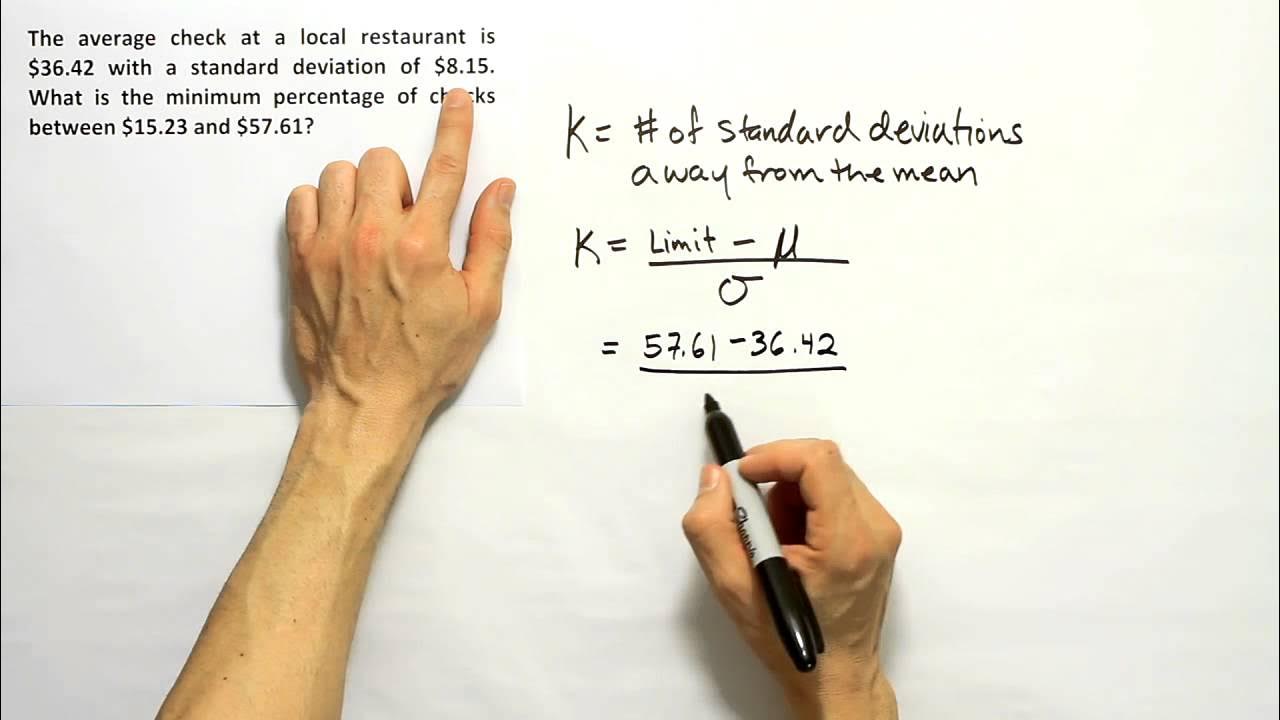 The average check at a local restaurant is
$36.42 with a standard deviation of $8.15.
What is the minimum percentage of checks
between $15.23 and $57.61?
K = # of standard deviations
away from the mean
K = Limit - μ
σ
= 57.61 - 36.42
Sharpie